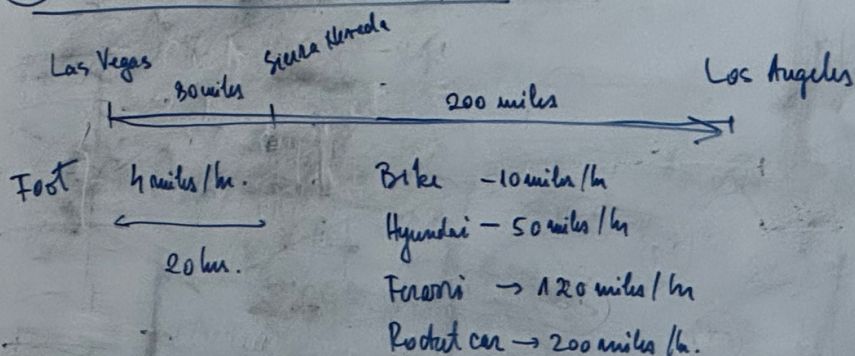 Las Vegas
Sierra Nevada
80 miles
200 miles
Los Angeles
Foot 4 miles/hr.
20 hrs.
Bike - 10 miles/hr
Hyundai - 50 miles/hr
Ferarri → 120 miles/hr
Rocket car → 200 miles/hr.